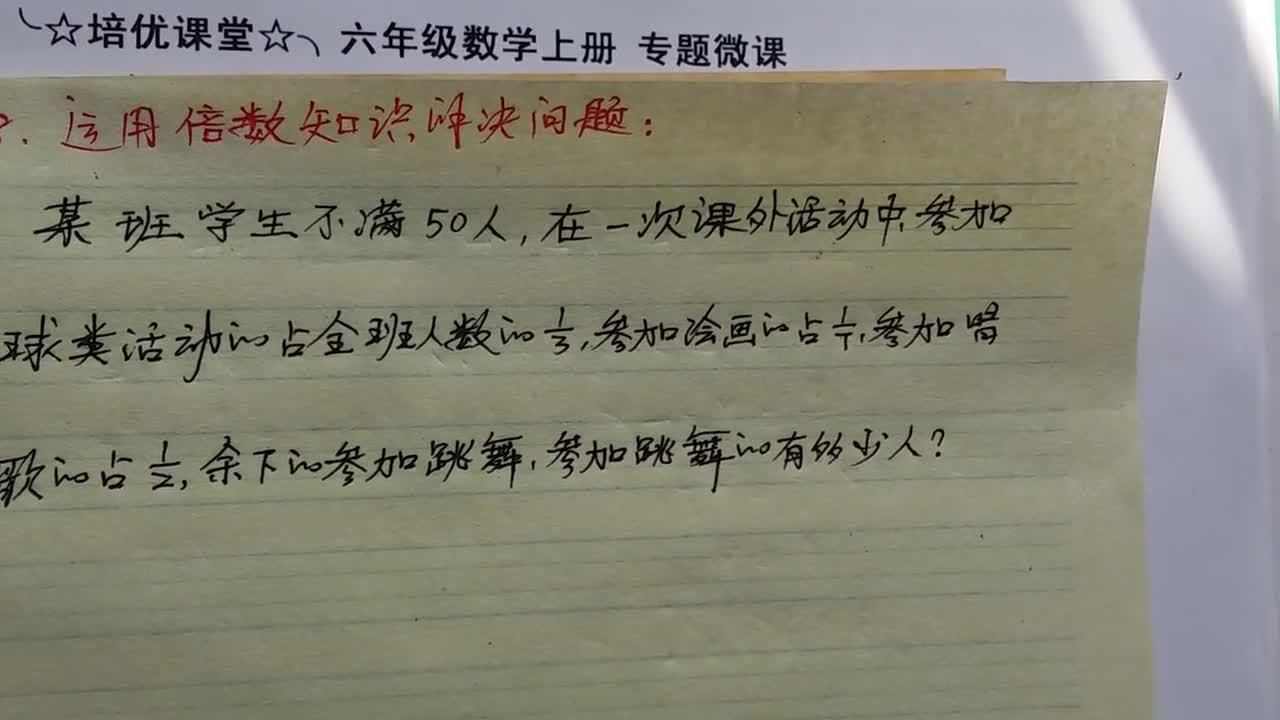 ☆培优课堂☆ 六年级数学上册 专题微课
. 运用倍数知识解决问题:
某班学生不满50人,在一次课外活动中,参加
球类活动的占全班人数的1/3,参加绘画的占1/7,参加唱
歌的占1/2,余下的参加跳舞,参加跳舞的有多少人?